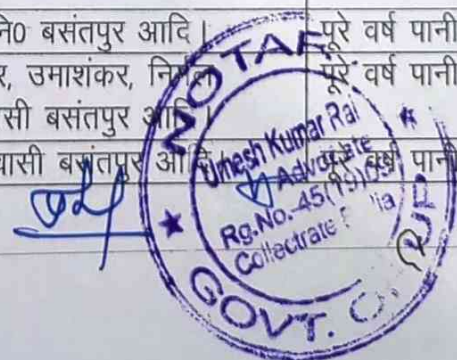 नि0 बसंतपुर आदि। पूरे वर्ष पानी
र, उमाशंकर, पूरे वर्ष पानी
सी बसंतपुर आदि।
वासी बसंतपुर आदि वर्ष पानी
NOTAR
Umesh Kumar Rai
Advocate
Rg.No.-45(19)
Collectrate
GOVT. O. UP